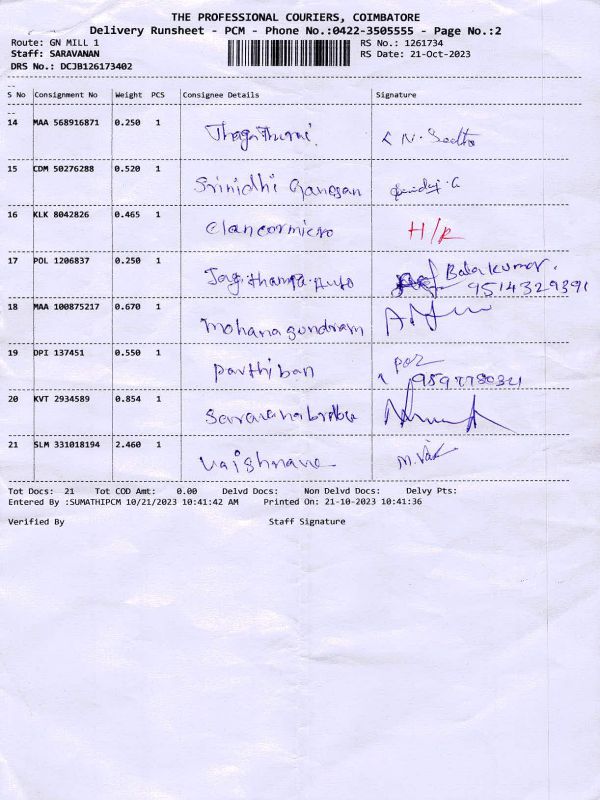 THE PROFESSIONAL COURIERS, COIMBATORE
Delivery Runsheet - PCM - Phone No.:0422-3505555 - Page No.:2
Route: GN MILL 1 RS No.: 1261734
Staff: SARAVANAN RS Date: 21-Oct-2023
DRS No.: DCJB126173402
S No Consignment No Weight PCS Consignee Details Signature
14 MAA 568916871 0.250 1
15 CDM 50276288 0.520 1 Srinidhi Ganesan
16 KLK 8042826 0.465 1 Elancormicro H/R
17 POL 1206837 0.250 1 Balakumar.
9514329391
18 MAA 100875217 0.670 1 mohana sundram
19 DPI 137451 0.550 1 Parthiban
20 KVT 2934589 0.854 1
21 SLM 331018194 2.460 1 Vaishnave
Tot Docs: 21 Tot COD Amt: 0.00 Delvd Docs: Non Delvd Docs: Delvy Pts:
Entered By :SUMATHIPCM 10/21/2023 10:41:42 AM Printed On: 21-10-2023 10:41:36
Verified By Staff Signature